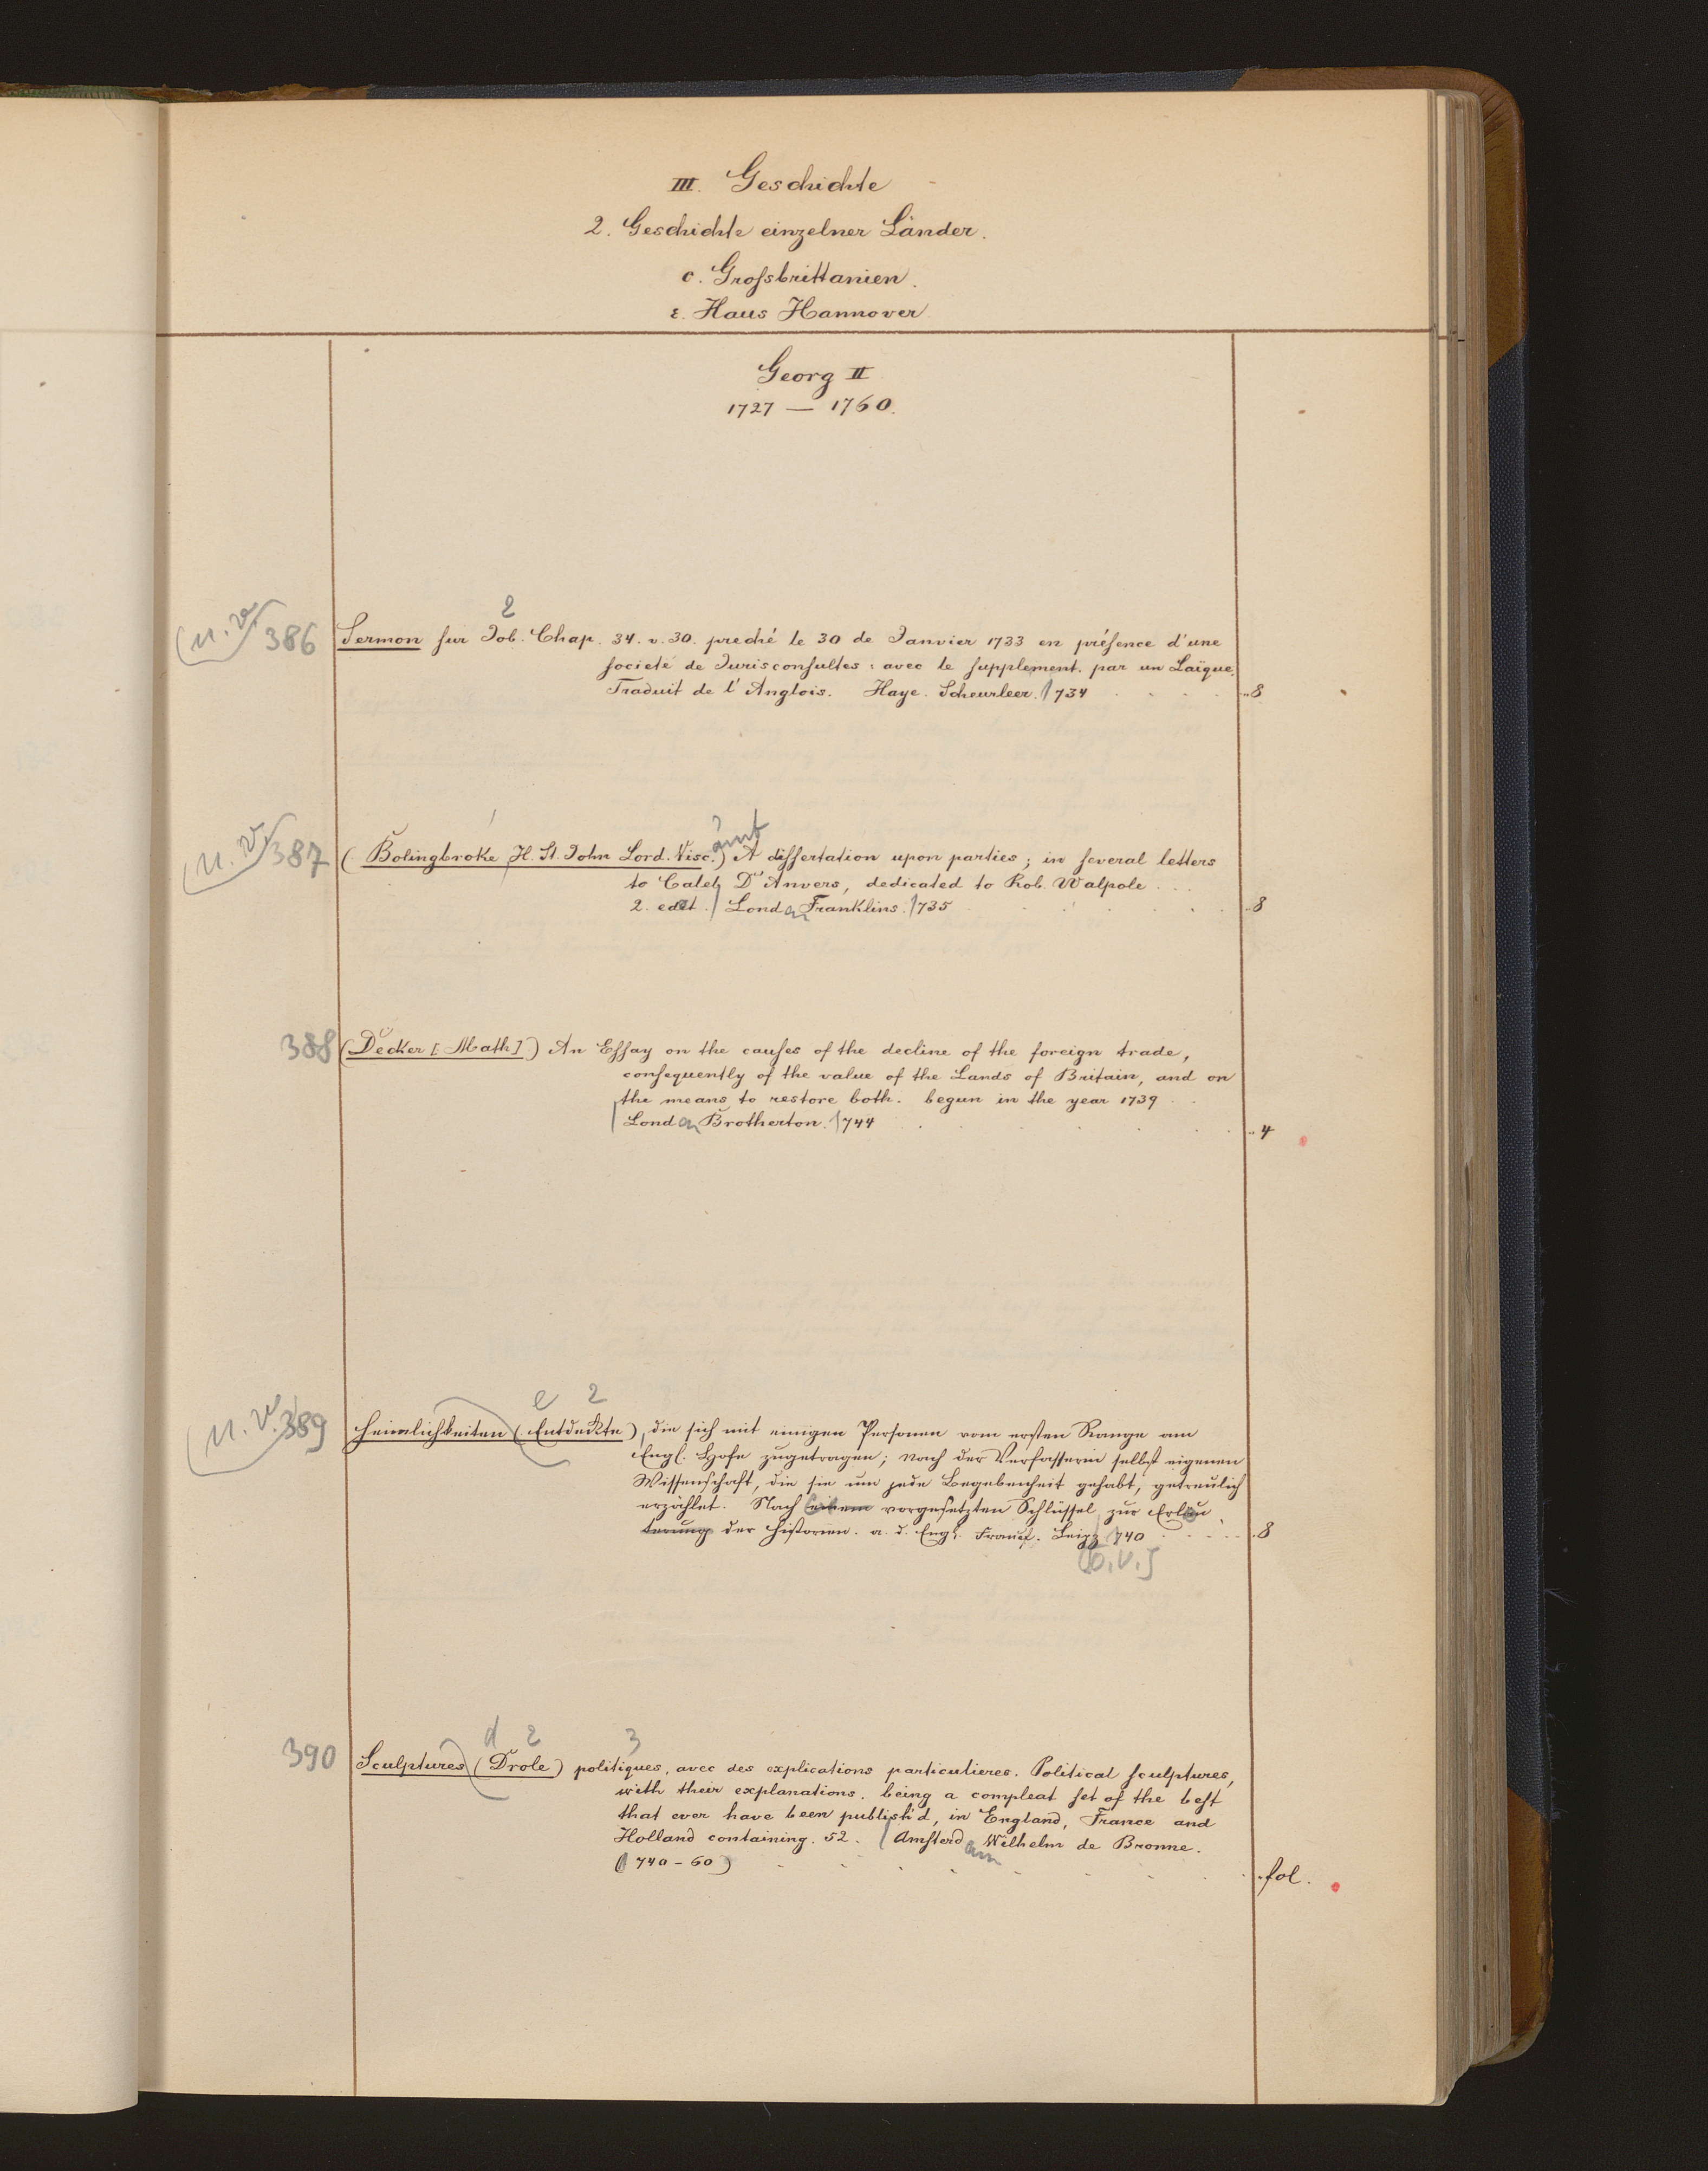 III. Geschichte
2. Geschichte einzelner Länder.
c. Grosſsbrittanien.
ε. Haus Hannover.
Georg II
1727 — 1760.
2
(n. v. 386 Sermon ſur Job. Chap. 34. v. 30. preché le 30 de Janvier 1733 en préſence d'une
ſocieté de Jurisconſultes : avec le ſupplement. par un Laïque.
Traduit de l'Anglois. Haye. Scheurleer. 1734 8
(n. v. 387 (Bolingbroke, H. St. John Lord. Visc.) A diſſertation upon parties ; in ſeveral letters
to Caleb D'Anvers, dedicated to Rob. Walpole
2. edit. / London Franklins. 1735 8
388 (Decker [Math]) An Eſſay on the cauſes of the decline of the foreign trade,
conſequently of the value of the Lands of Britain, and on
the means to restore both. begun in the year 1739
London Brotherton. 1744 4
e 2
(n. v. 389 Heimlichkeiten (Entdeckte), die sich mit einigen Personen vom ersten Range am
Engl. Hofe zugetragen; nach der Verfasserin selbst eigenen
Wissenschaft, die sie um jede Begebenheit gehabt, getreulich
erzählet. Nach vorgesetzten Schlüssel zur Erläu
terung der Historien. a. d. Engl. Leipz 1740 8
[o. V.]
d 2 3
390 Sculptures (Drole) politiques, avec des explications particulieres. Political ſculptures,
with their explanations. being a compleat ſet of the beſt
that ever have been publish'd, in England, France and
Holland containing. 52. / Amſterdam Wilhelm de Bronne.
(1740 - 60) fol.